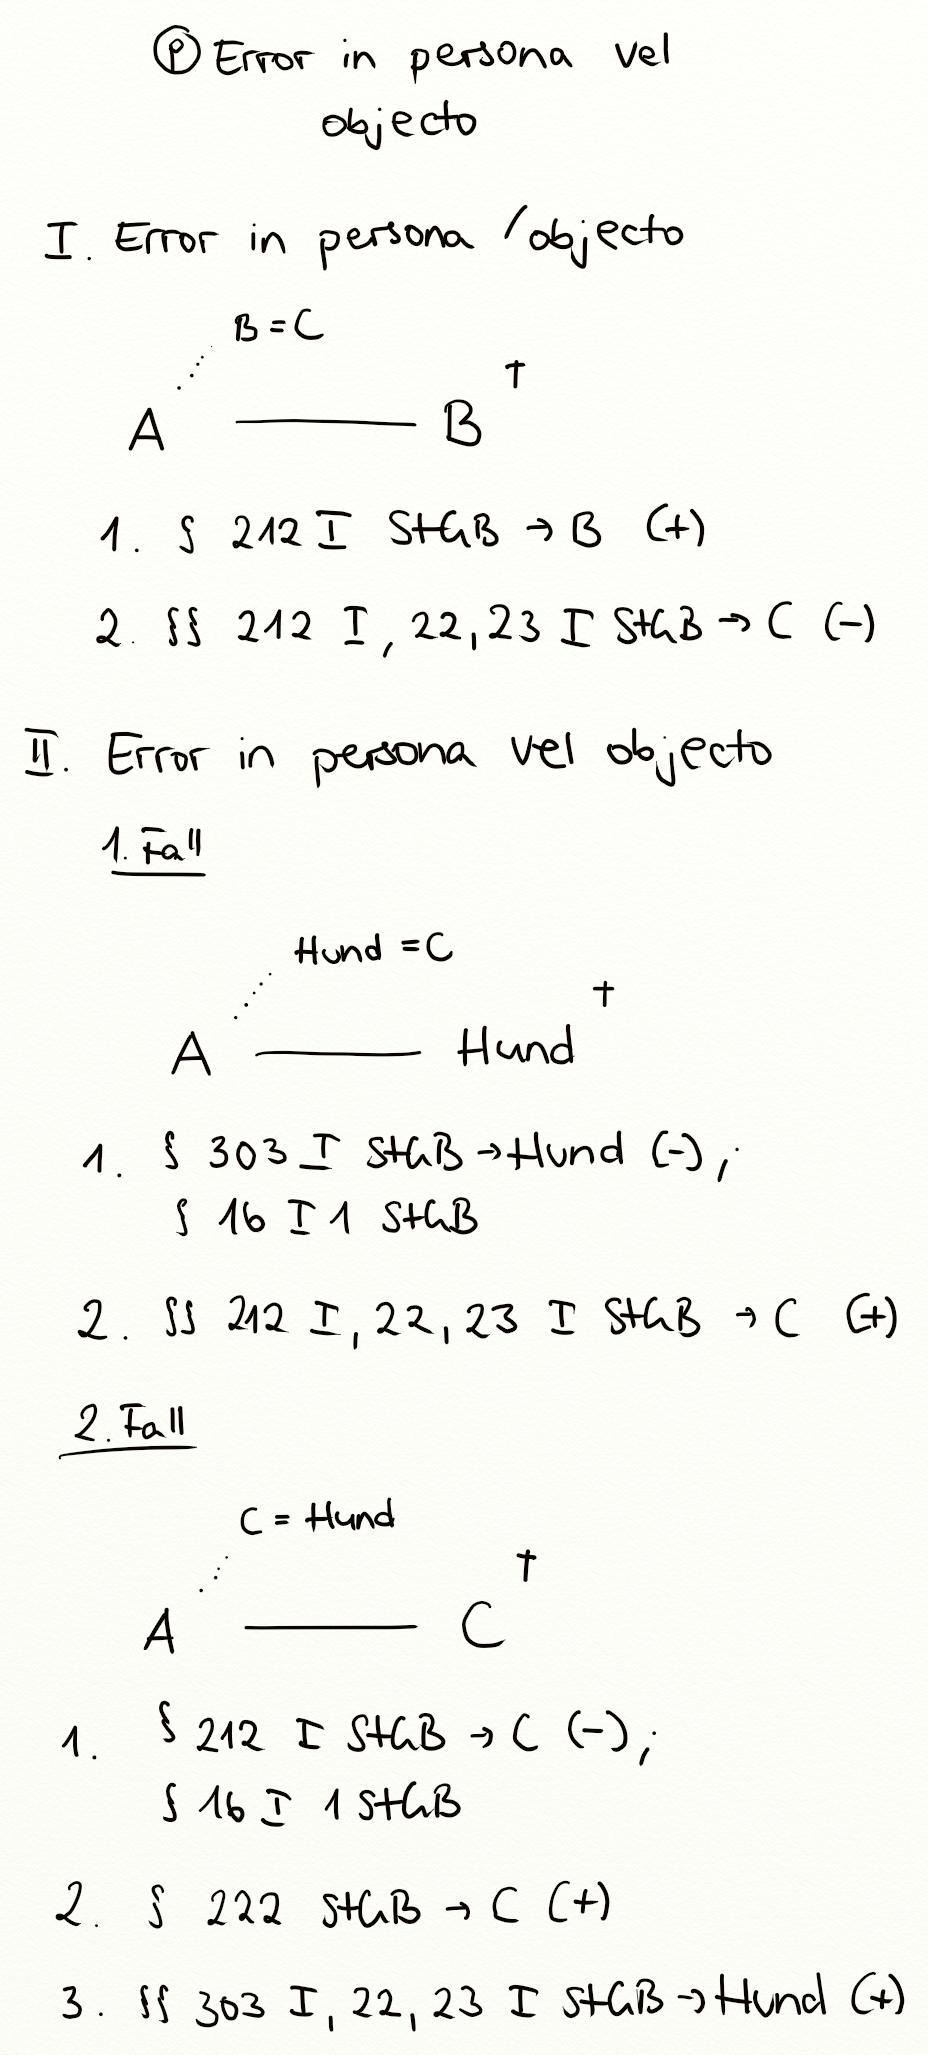 Ⓟ Error in persona vel
objecto
I. Error in persona / objecto
B = C
†
A — B
1. § 212 I StGB → B (+)
2. §§ 212 I, 22, 23 I StGB → C (-)
II. Error in persona vel objecto
1. Fall
Hund = C
†
A — Hund
1. § 303 I StGB → Hund (-);
§ 16 I 1 StGB
2. §§ 212 I, 22, 23 I StGB → C (+)
2. Fall
C = Hund
†
A — C
1. § 212 I StGB → C (-);
§ 16 I 1 StGB
2. § 222 StGB → C (+)
3. §§ 303 I, 22, 23 I StGB → Hund (+)